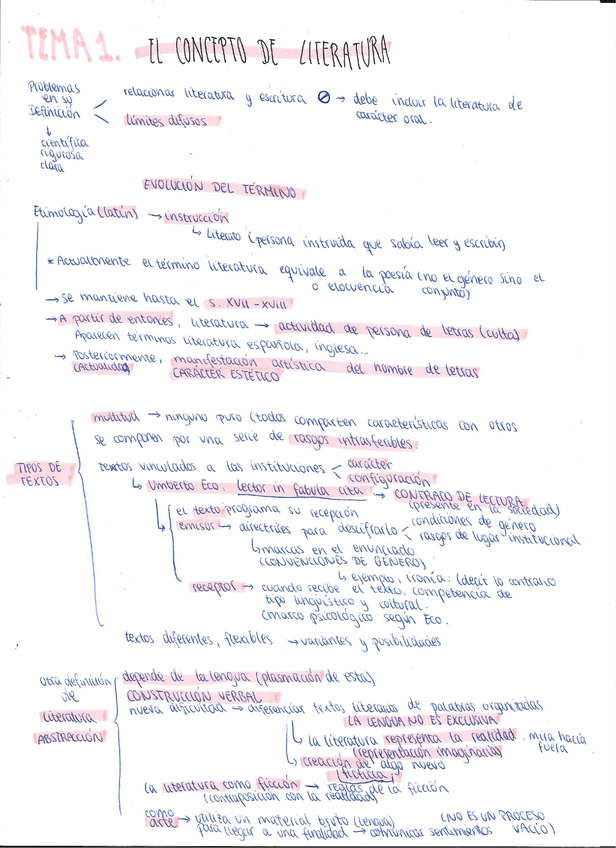 TEMA 1. EL CONCEPTO DE LITERATURA
Problemas en su Definición
relacionar literatura y escritura ∅ → debe incluir la literatura de carácter oral.
límites difusos
↓
científica
rigurosa
clara
EVOLUCIÓN DEL TÉRMINO
Etimología (latín) → instrucción
↳ Literato (persona instruida que sabía leer y escribir)
* Actualmente el término literatura equivale a la poesía (no el género sino el
o elocuencia conjunto)
→ se mantiene hasta el s. XVII - XVIII
→ A partir de entonces, literatura → actividad de persona de letras (culta)
Aparecen términos literatura española, inglesa...
→ Posteriormente, manifestación artística del hombre de letras
(Actualidad) CARÁCTER ESTÉTICO
TIPOS DE TEXTOS
multitud → ninguno puro (todos comparten características con otros
se componen por una serie de rasgos intrasferibles.
textos vinculados a las instituciones < carácter
configuración
↳ Umberto Eco, lector in fabula cita → CONTRATO DE LECTURA
(presente en la sociedad)
el texto programa su recepción
emisor → directrices para descifrarlo < condiciones de género
rasgos de lugar institucional
↳ marcas en el enunciado
(CONVENCIONES DE GÉNERO)
↳ ejemplo, ironía: (decir lo contrario
receptor → cuando recibe el texto, competencia de
tipo lingüístico y cultural.
(marco psicológico según Eco.
textos diferentes, flexibles → variantes y posibilidades
otra definición de
Literatura
ABSTRACCIÓN
depende de la lengua (plasmación de esta)
CONSTRUCCIÓN VERBAL
nueva dificultad → diferenciar textos literarios de palabras organizadas
LA LENGUA NO ES EXCLUSIVA
↳ la literatura representa la realidad, mira hacia fuera
(representación imaginaria)
↳ creación de algo nuevo
(ficticia)
la literatura como ficción → reglas de la ficción
(contraposición con la realidad)
como arte → utiliza un material bruto (lengua) (NO ES UN PROCESO
para llegar a una finalidad → comunicar sentimientos VACÍO)